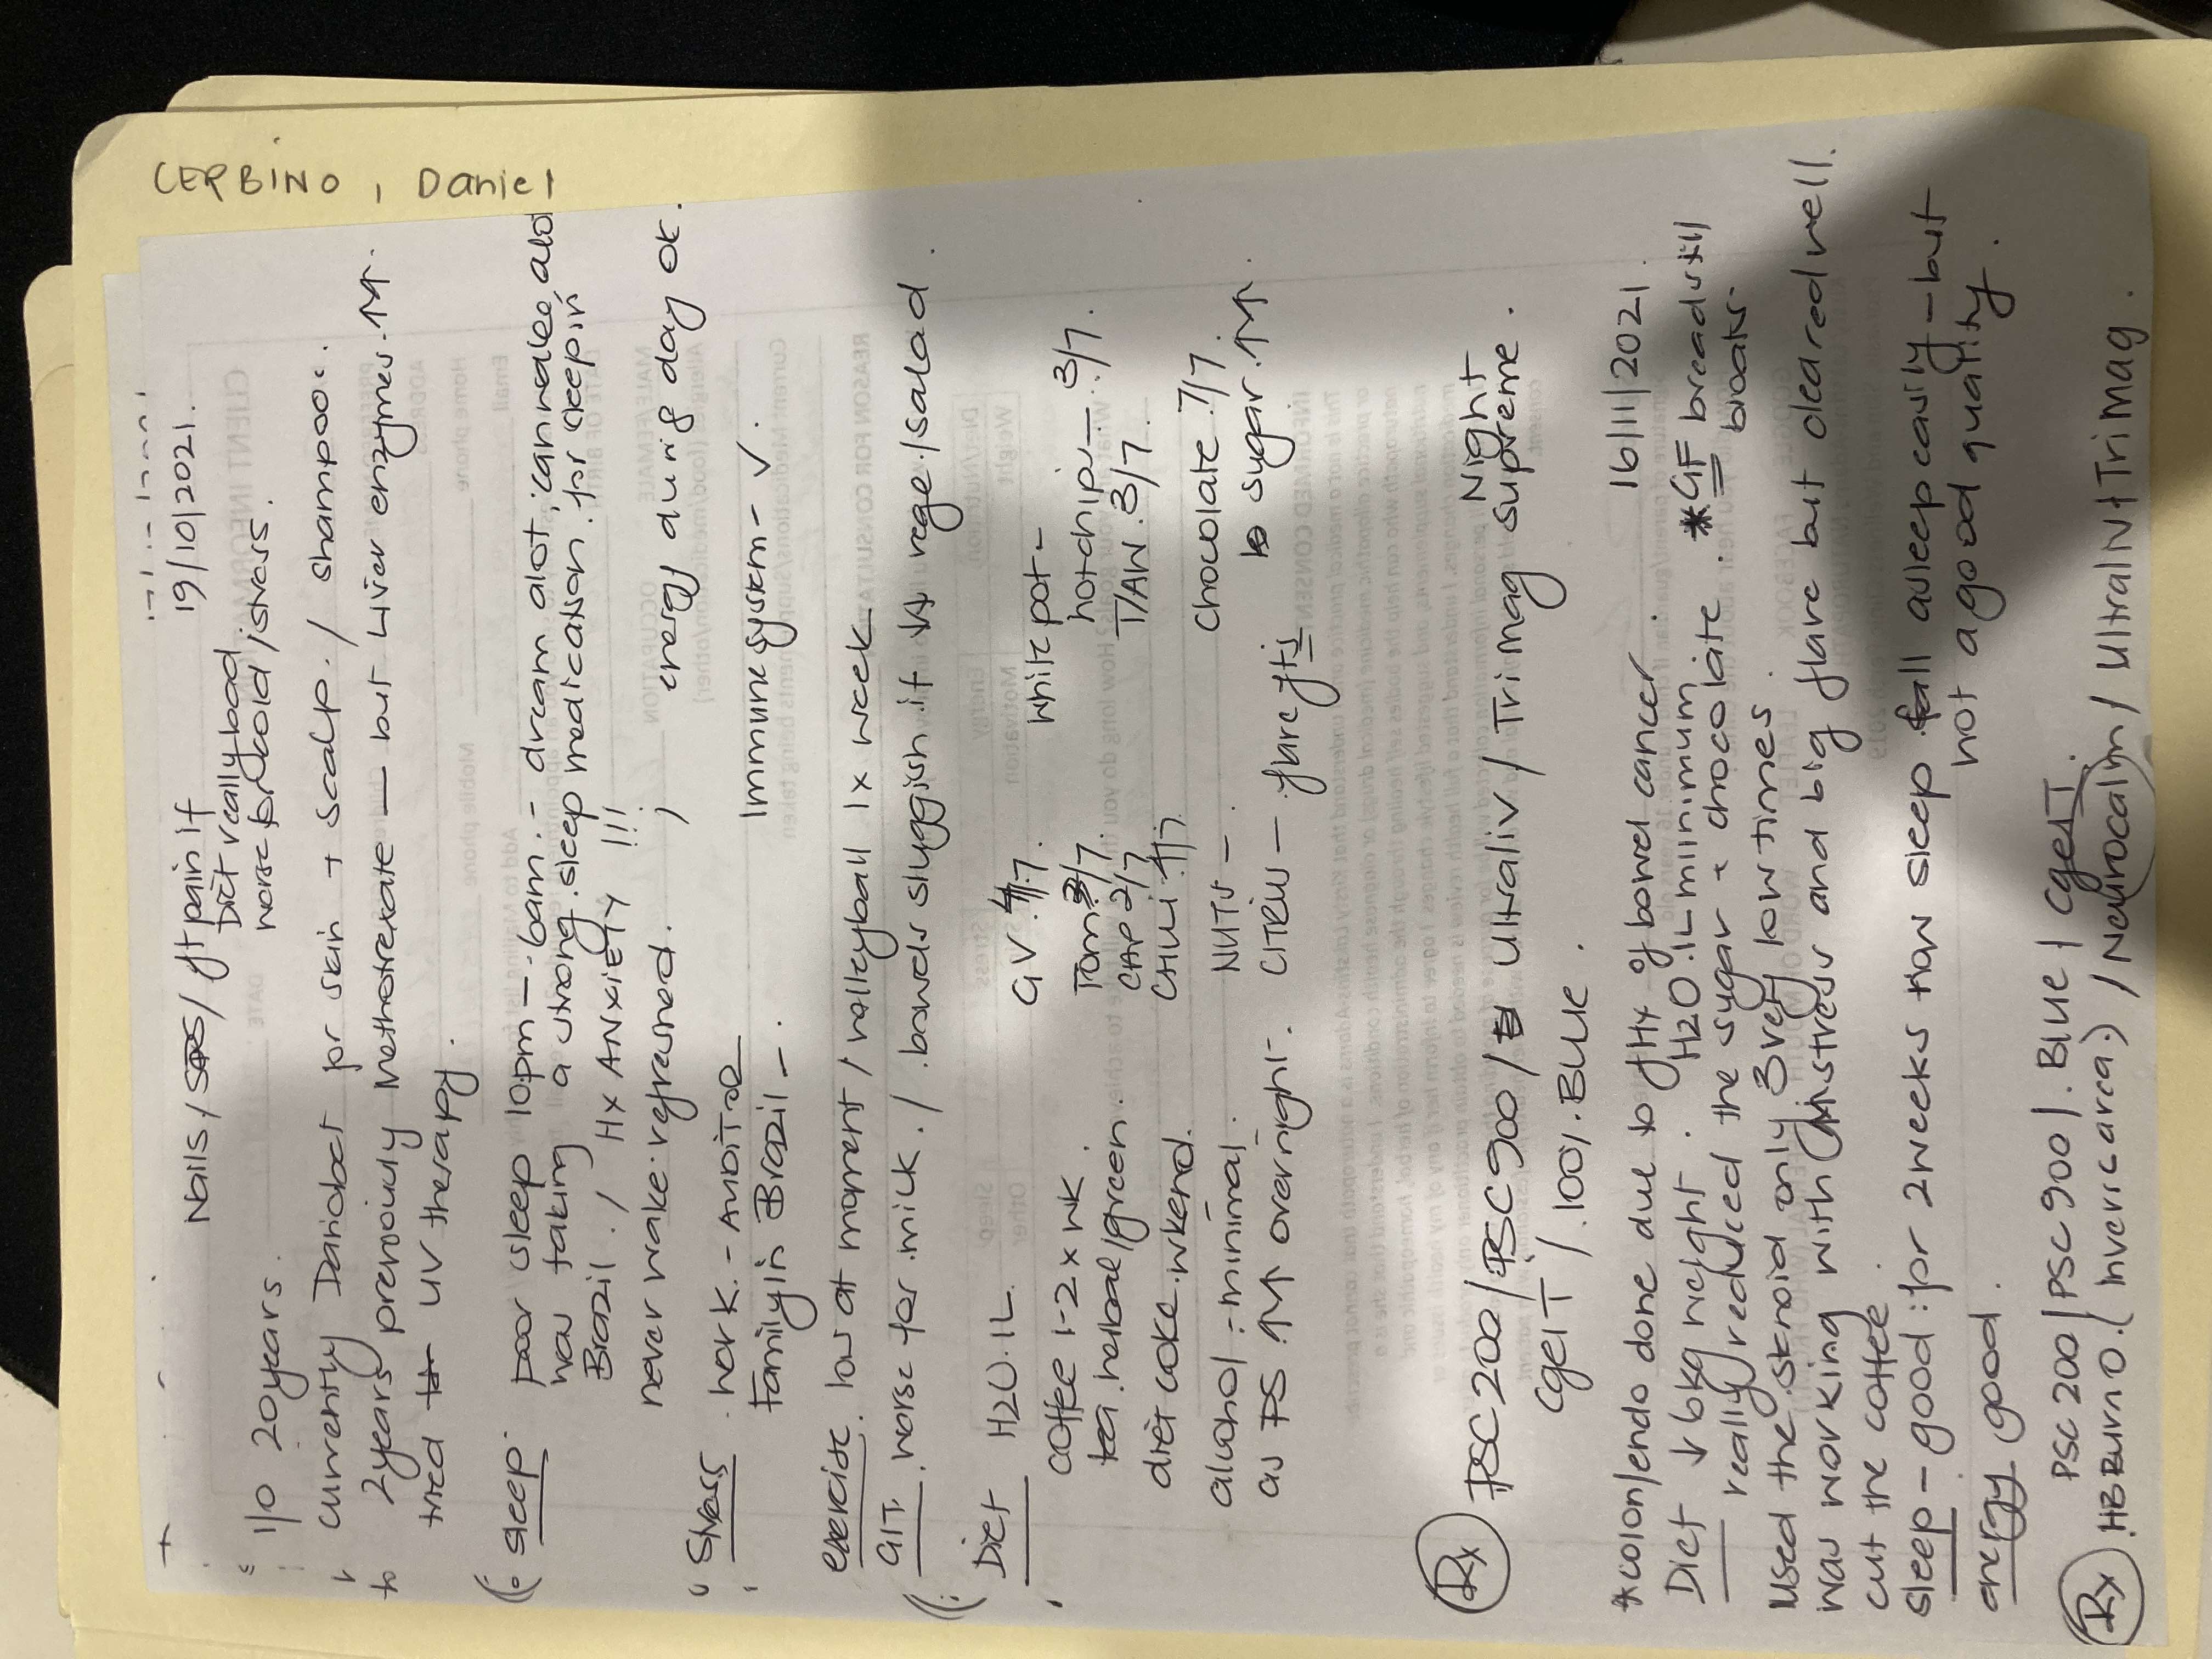 CERBINO, Daniel
Nails / / jt pain if 19/10/2021.
Diet really bad
worse for cold / stress.
y/o 20 years.
currently Daivobet for skin + scalp. / shampoo.
2 years previously Methotrexate — but Liver enzymes ↑↑.
tried UV therapy.
Sleep. poor sleep 10pm – 6am. – dream alot, can wake alot
now taking a strong sleep medication. for sleep in
Brazil. / Hx ANXIETY !!!
never wake refreshed. ; energy during day ok.
Stress. work. – AUDITOR
family in Brazil – . Immune system – ✓.
exercise. low at moment / volleyball 1x week
GIT. worse for milk. / bowels sluggish if ↓ vege / salad.
Diet H2O. 1L. GV. 7. white pot –
coffee 1-2 x wk. Tom. /7. hot chips — 3/7.
tea. herbal / green. CAP 2/7 T/AW. 3/7.
diet coke. wkend. CHILI.
alcohol – minimal. NUTS – chocolate. 7/7.
as PS ↑↑ overnight. CITRUS – flares jts sugar. ↑↑.
Rx PSC 200 / PSC 900 / Ultraliv / Trimag Night
Supreme.
CgeIT / .100%. BLUE.
* colon/endo done due to fHx of bowel cancer. 16/11/2021.
Diet ↓ 6kg weight. H2O. 1L minimum * GF bread still
really reduced the sugar + chocolate. bloats.
Used the steroid only 3 very low times.
was working with stress and big flare but cleared well.
cut the coffee.
sleep – good: for 2 weeks now sleep fall asleep easily – but
not a good quality.
energy good.
PSC 200 / PSC 900 / . BLUE / CgeIT.
Rx HB Burn O. (Inveric area) / Neurocalm / Ultraliv + Trimag.